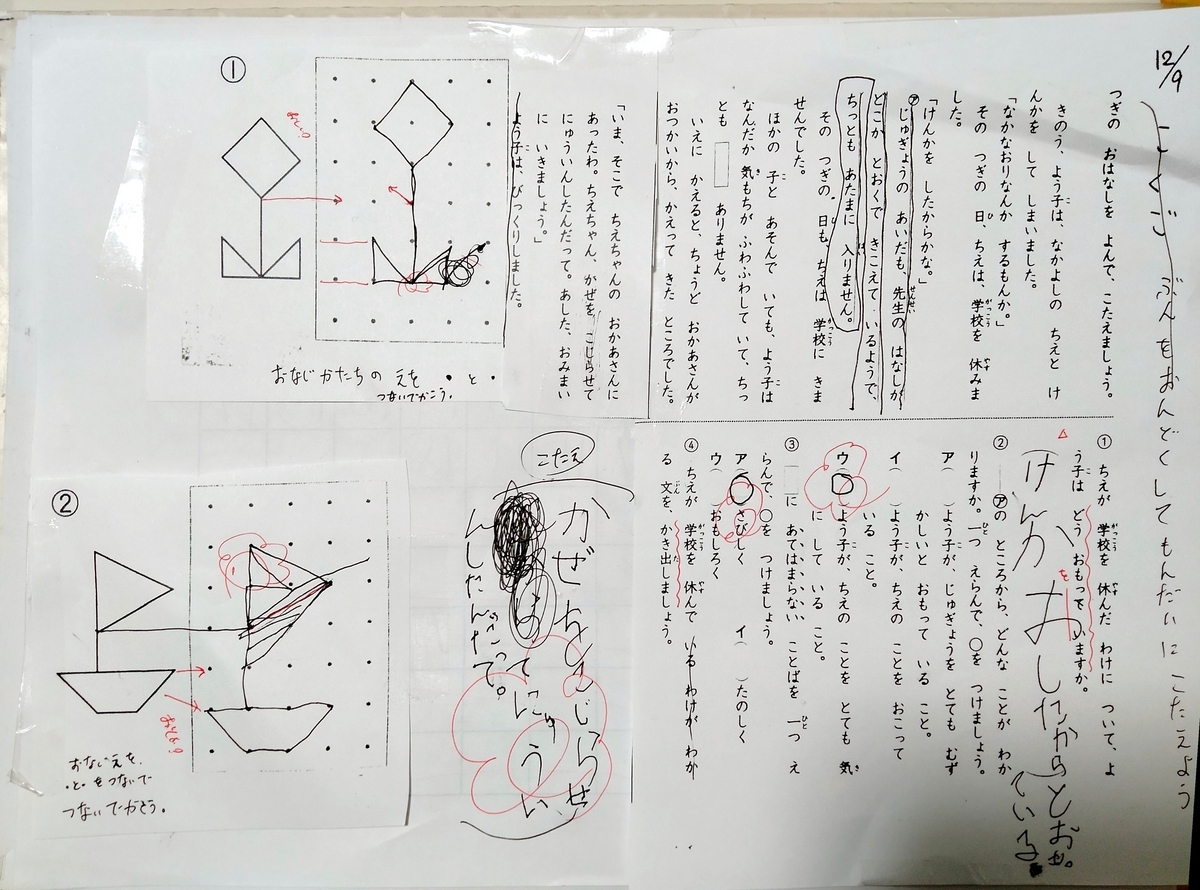 12/9
こくご ぶんをおんどくして もんだいに こたえよう
つぎの おはなしを よんで、こたえましょう。
きのう、よう子は、なかよしの ちえと け
んかを して しまいました。
「なかなおりなんか するもんか。」
その つぎの 日、ちえは、学校を 休みま
した。
「けんかを したからかな。」
㋐じゅぎょうの あいだも、先生の はなしが
どこか とおくで きこえて いるようで、
ちっとも あたまに 入りません。
その つぎの 日も、ちえは 学校に きま
せんでした。
ほかの 子と あそんで いても、よう子は
なんだか 気もちが ふわふわして いて、ちっ
とも □ ありません。
いえに かえると、ちょうど おかあさんが
おつかいから、かえって きた ところでした。
「いま、そこで ちえちゃんの おかあさんに
あったわ。ちえちゃん、かぜを こじらせて
にゅういんしたんだって。あした、おみまい
に いきましょう。」
よう子は、びっくりしました。
① ちえが 学校を 休んだ わけに ついて、よ
う子は どう おもって いますか。
を
けんかおしたからとおも
ている。
② ㋐の ところから、どんな ことが わか
りますか。一つ えらんで、○を つけましょう。
ア( )よう子が、じゅぎょうを とても むず
かしいと おもって いる こと。
イ( )よう子が、ちえの ことを おこって
いる こと。
ウ(○)よう子が、ちえの ことを とても 気
に して いる こと。
③ □に あてはまらない ことばを 一つ え
らんで、○を つけましょう。
ア(○)さびしく イ( )たのしく
ウ( )おもしろく
④ ちえが 学校を 休んで いる わけが わか
る 文を、かき出しましょう。
こたえ
かぜをこじらせ
てにゅうい
んしたんだって。
①
おなじかたちの えを ・と・
つないでかこう。
②
おなじえを、
・と・をつないで